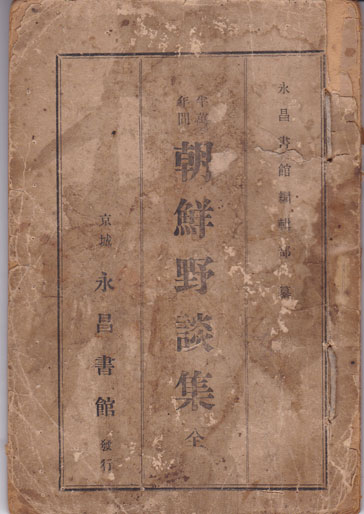 永昌書館編輯部 纂
半萬年間 朝鮮野談集 全
京城 永昌書館 發行